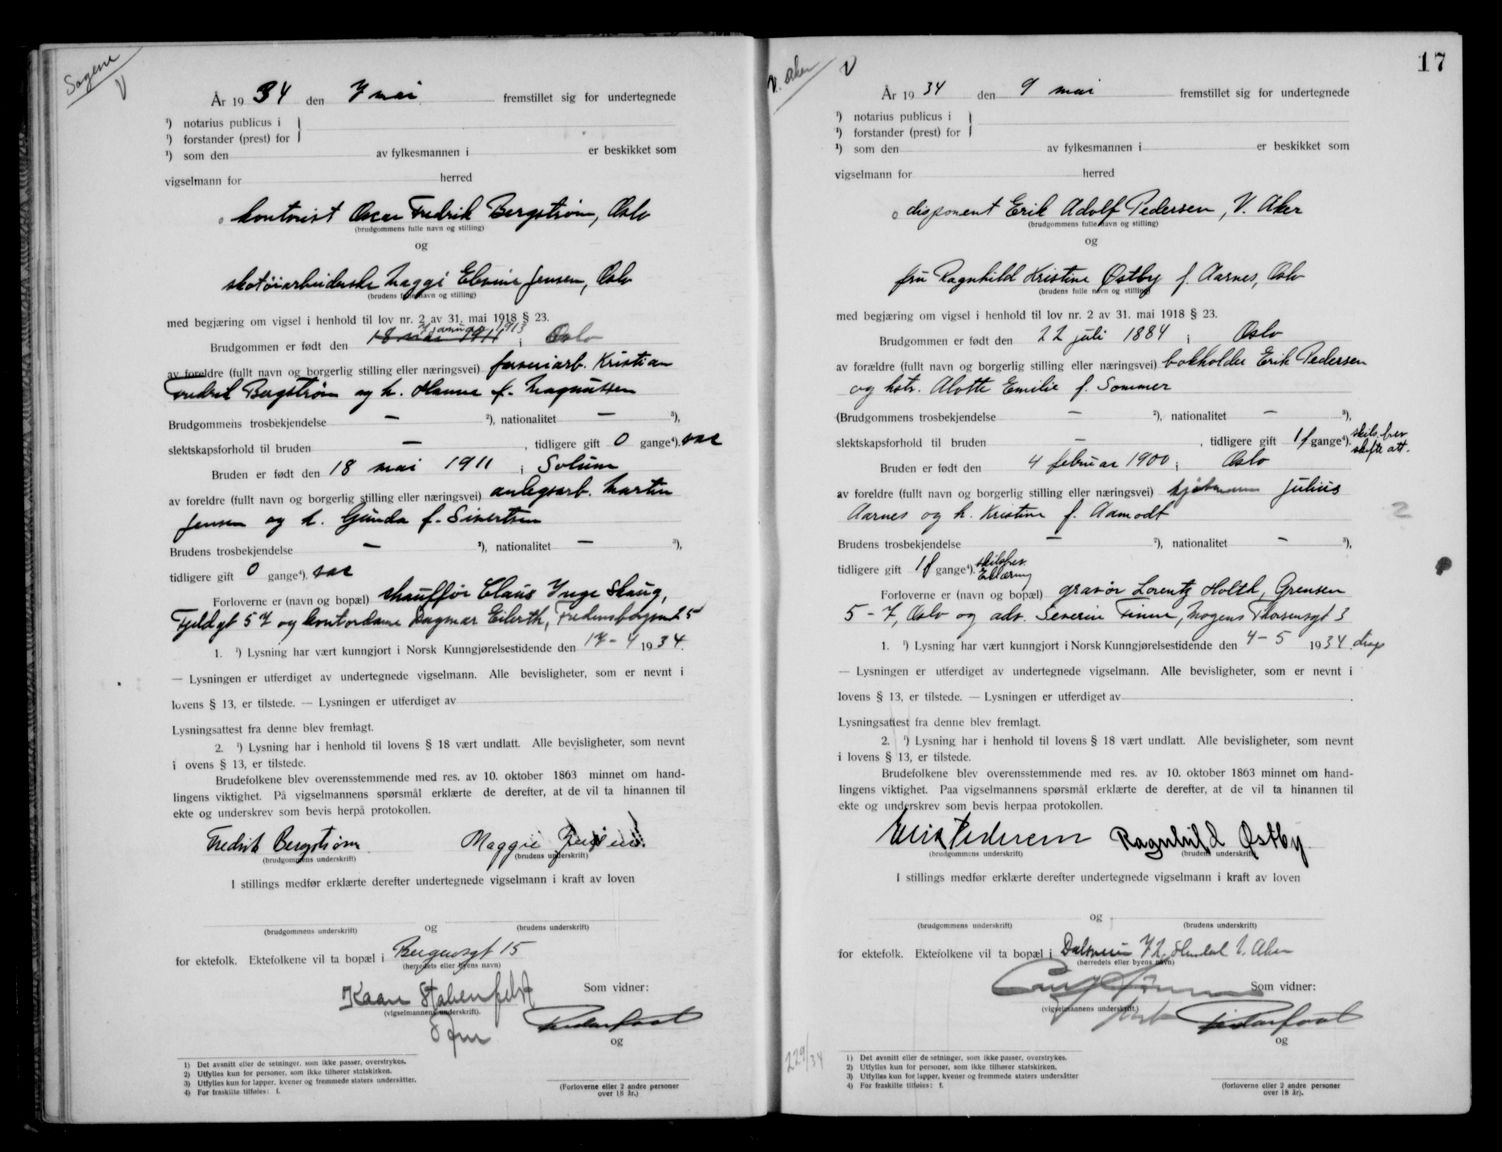 Sagene
V
År 1934 den 7 mai fremstillet sig for undertegnede
¹) notarius publicus i
¹) forstander (prest) for
¹) som den av fylkesmannen i er beskikket som
vigselmann for herred
kontorist Oscar Fredrik Bergstrøm, Oslo
(brudgommens fulle navn og stilling)
og
skotøiarbeiderske Maggi Elevine Jensen, Oslo
(brudens fulle navn og stilling)
med begjæring om vigsel i henhold til lov nr. 2 av 31. mai 1918 § 23.
7 januar 1913
Brudgommen er født den 18 mai 1911 i Oslo
av foreldre (fullt navn og borgerlig stilling eller næringsvei) farveriarb. Kristian
Fredrik Bergstrøm og h. Hanna f. Magnussen
Brudgommens trosbekjendelse — ²), nationalitet — ³),
slektskapsforhold til bruden — , tidligere gift 0 gange⁴).
Bruden er født den 18 mai 1911 i Solum
av foreldre (fullt navn og borgerlig stilling eller næringsvei) anlegsarb. Martin
Jensen og h. Gunda f. Sivertsen
Brudens trosbekjendelse — ²), nationalitet — ³),
tidligere gift 0 gange⁴).
Forloverne er (navn og bopæl) chauffør Claus Inge Skaug,
Fjeldgt 57 og kontordame Dagmar Eilerth, Fredensborgvnt 5
1. ¹) Lysning har vært kunngjort i Norsk Kunngjørelsestidende den 17-4 1934.
— Lysningen er utferdiget av undertegnede vigselmann. Alle bevisligheter, som er nevnt i
lovens § 13, er tilstede. — Lysningen er utferdiget av
Lysningsattest fra denne blev fremlagt.
2. ¹) Lysning har i henhold til lovens § 18 vært undlatt. Alle bevisligheter, som nevnt
i ovens § 13, er tilstede.
Brudefolkene blev overensstemmende med res. av 10. oktober 1863 minnet om hand-
lingens viktighet. På vigselmannens spørsmål erklærte de derefter, at de vil ta hinannen til
ekte og underskrev som bevis herpå protokollen.
Fredrik Bergstrøm Maggie Jensen
(brudgommens underskrift) (brudens underskrift)
I stillings medfør erklærte derefter undertegnede vigselmann i kraft av loven
og
(brudgommens underskrift) (brudens underskrift)
for ektefolk. Ektefolkene vil ta bopæl i Bergensgt 15
(herredets eller byens navn)
Som vidner:
(vigselmannens underskrift).
og
1) Det avsnitt eller de setninger, som ikke passer, overstrykes.
2) Utfylles kun for personer, som ikke tilhører statskirken.
3) Utfylles kun for lapper, kvener og fremmede staters undersåtter.
4) For fraskilte tilføies: f.
(Forloverne eller 2 andre personer
over 18 år.)
17
V. Aker
V
År 1934 den 9 mai fremstillet sig for undertegnede
¹) notarius publicus i
¹) forstander (prest) for
¹) som den av fylkesmannen i er beskikket som
vigselmann for herred
disponent Erik Adolf Pedersen, V. Aker
(brudgommens fulle navn og stilling)
og
fru Ragnhild Kristine Østby f. Aarnes, Oslo
(brudens fulle navn og stilling)
med begjæring om vigsel i henhold til lov nr. 2 av 31. mai 1918 § 23.
Brudgommen er født den 22 juli 1884 i Oslo
av forældre (fullt navn og borgerlig stilling eller næringsvei) bokholder Erik Pedersen
og hstr. Alotte Emilie f. Sommer
(Brudgommens trosbekjendelse — ²), nationalitet — ³),
slektskapsforhold til bruden — , tidligere gift 1 f gange⁴). skils.bev
skifte att.
Bruden er født den 4 februar 1900 i Oslo
av foreldre (fullt navn og borgerlig stilling eller næringsvei) kjøbmann Julius
Aarnes og h. Kristine f. Aamodt
2
Brudens trosbekjendelse — ²), nationalitet — ³),
tidligere gift 1 f gange⁴). skilsbev
Erklæring
Forloverne er (navn og bopæl) gravør Lorentz Holtd, Grensen
5-7, Oslo og adv. Severin Finne, Mogens Thorsensgt 3
1. ¹) Lysning har vært kunngjort i Norsk Kunngjørelsestidende den 4-5 1934.
— Lysningen er utferdiget av undertegnede vigselmann. Alle bevisligheter, som er nevnt i
lovens § 13, er tilstede. — Lysningen er utferdiget av
Lysningsattest fra denne blev fremlagt.
2. ¹) Lysning har i henhold til lovens § 18 vært undlatt. Alle bevisligheter, som nevnt
i lovens § 13, er tilstede.
Brudefolkene blev overensstemmende med res. av 10. oktober 1863 minnet om hand-
lingens viktighet. Paa vigselmannens spørsmål erklærte de derefter, at de vil ta hinannen til
ekte og underskrev som bevis herpaa protokollen.
Erik Pedersen Ragnhild Østby
(brudgommens underskrift) (brudens underskrift)
I stillings medfør erklærte derefter undertegnede vigselmann i kraft av loven
og
(brudgommens underskrift) (brudens underskrift)
for ektefolk. Ektefolkene vil ta bopæl i V. Aker
(herredets eller byens navn)
Som vidner:
(vigselmannens underskrift).
og
229/34
1) Det avsnitt eller de setninger, som ikke passer, overstrykes.
2) Utfylles kun for personer, som ikke tilhører statskirken.
3) Utfylles kun for lapper, kvener og fremmede staters undersåtter
4) For fraskilte tilføies: f.
(Forloverne eller 2 andre personer
over 18 år).